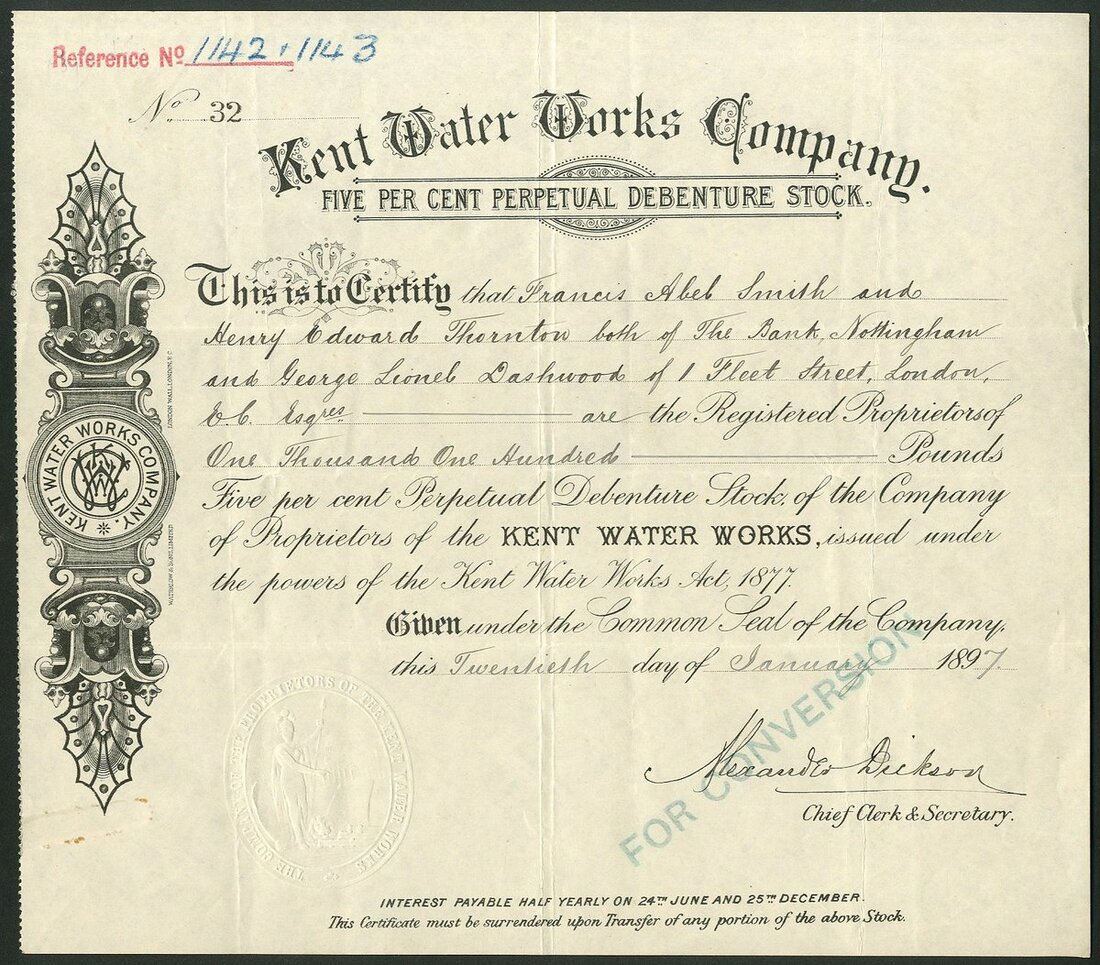 Reference No 1142 + 1143
No. 32
Kent Water Works Company.
FIVE PER CENT PERPETUAL DEBENTURE STOCK.
This is to Certify that Francis Abel Smith and
Henry Edward Thornton both of The Bank, Nottingham
and George Lionel Dashwood of 1 Fleet Street, London,
E.C. Esqres are the Registered Proprietors of
One Thousand One Hundred Pounds
Five per cent Perpetual Debenture Stock, of the Company
of Proprietors of the KENT WATER WORKS, issued under
the powers of the Kent Water Works Act, 1877.
Given under the Common Seal of the Company,
this Twentieth day of January 1897.
Alexander Dickson
Chief Clerk & Secretary.
FOR CONVERSION
INTEREST PAYABLE HALF YEARLY ON 24TH JUNE AND 25TH DECEMBER.
This Certificate must be surrendered upon Transfer of any portion of the above Stock.
KENT WATER WORKS COMPANY.
WATERLOW & SONS LIMITED
LONDON WALL, LONDON, E.C.
THE COMPANY OF THE PROPRIETORS OF THE KENT WATER WORKS